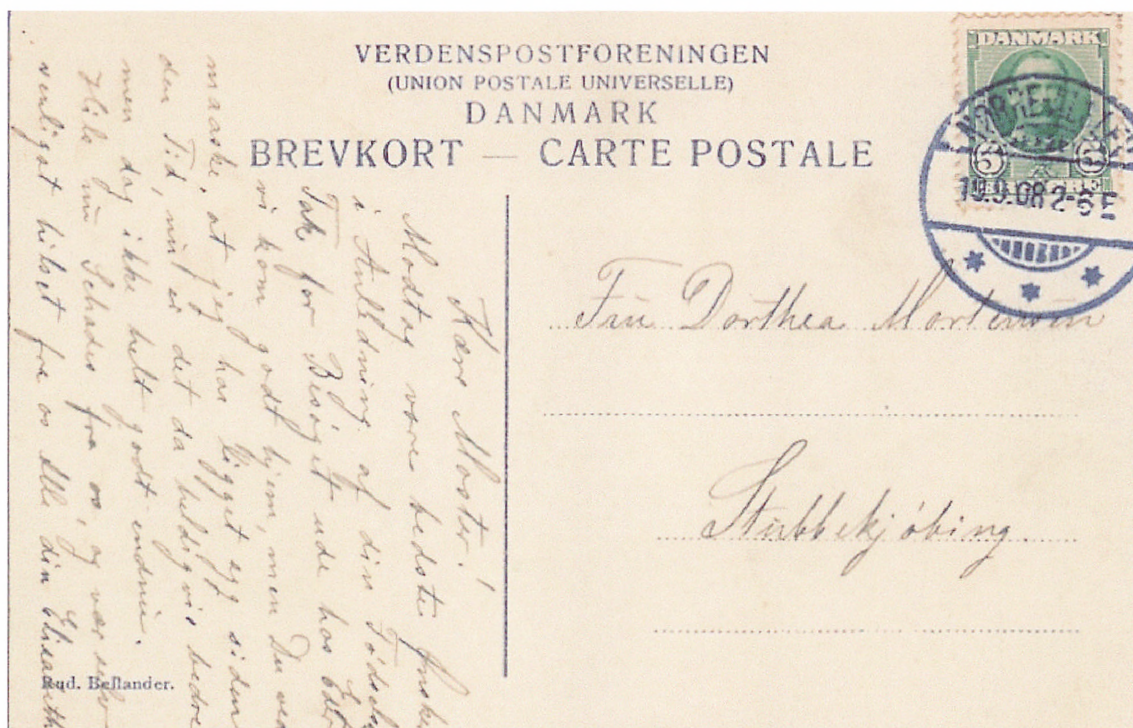 VERDENSPOSTFORENINGEN
(UNION POSTALE UNIVERSELLE)
DANMARK
BREVKORT — CARTE POSTALE
DANMARK
5 5
19.9.08 2-6 E
Frü Dorthea Mortensen
Stubbekjöbing.
Kære Moster!
Modtag vore bedste
i Anledning af din
Tak for Besöget ude hos
vi kom godt hjem, men Du
maaske, at jeg har ligget syg siden
den Tid, nu er det da heldigvis bedre
men dog ikke helt godt endnu.
Hils nu Schades fra os, og vær selv
venligst hilset fra os Alle din Elisabeth
Rud. Bellander.